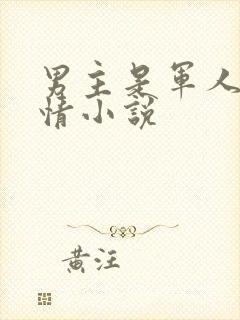 男主是军人
情小说
黄汪